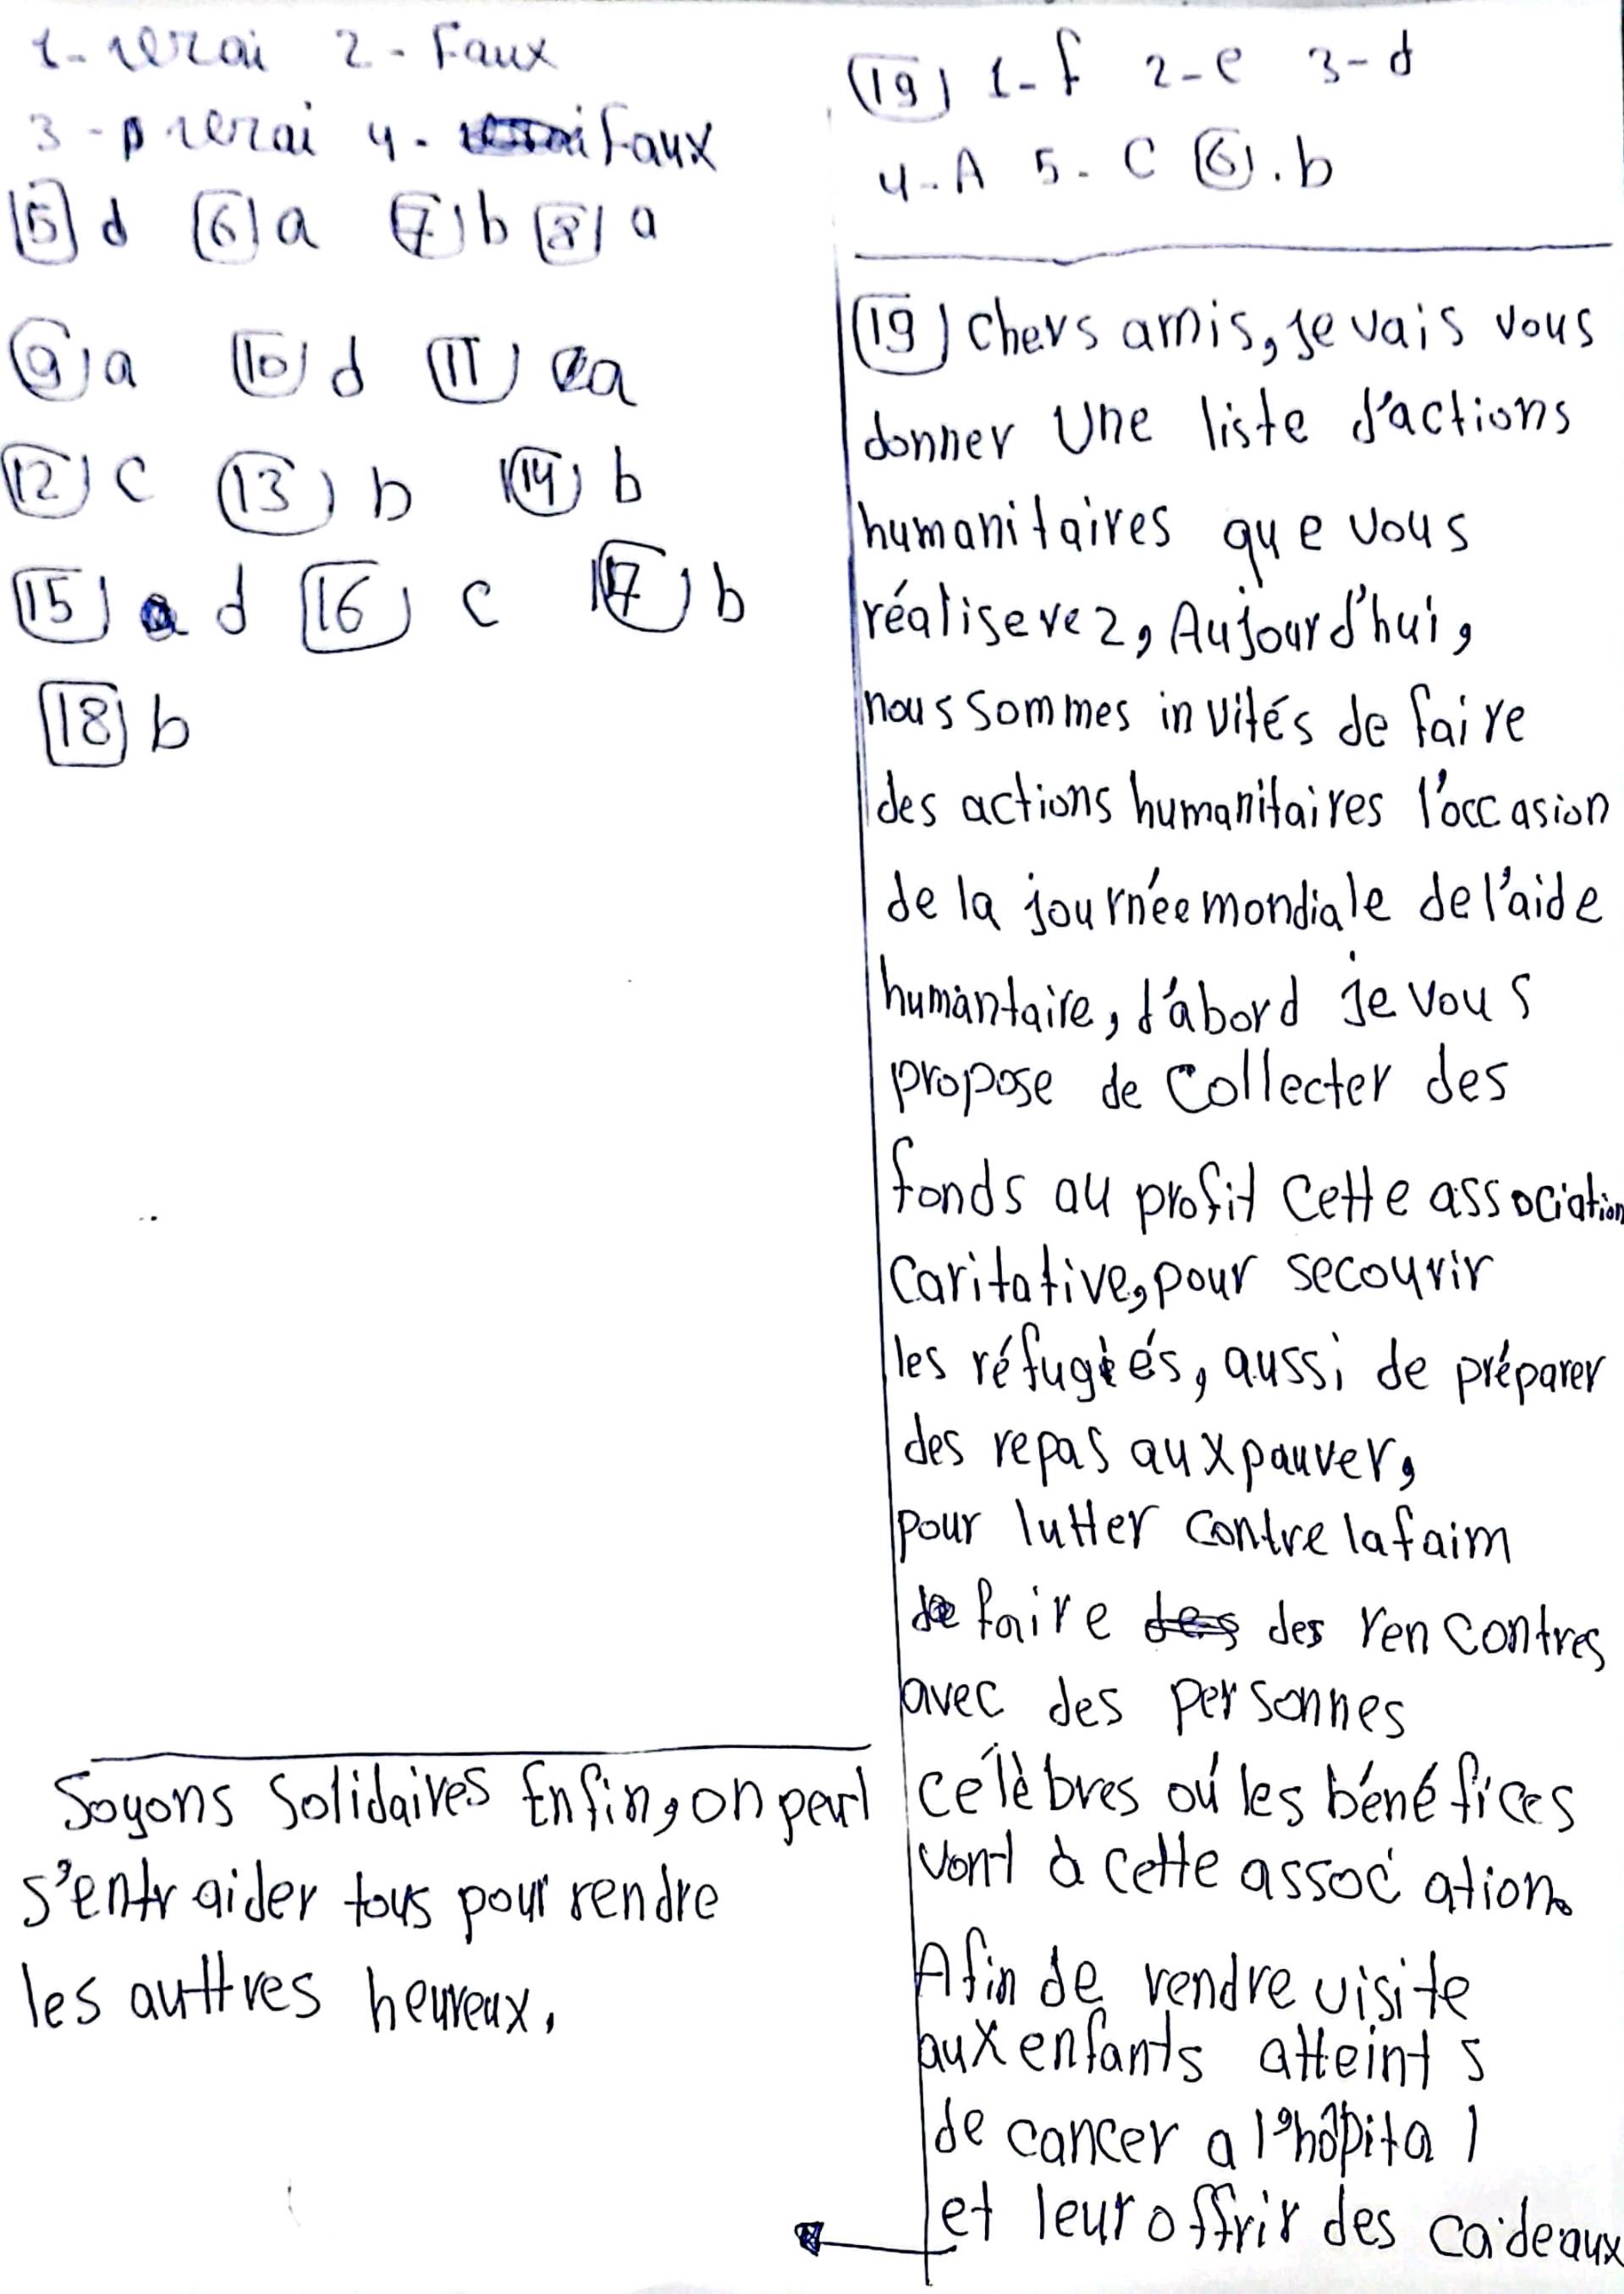 1- vrai 2- Faux
3- vrai 4- Faux
5) d 6) a 7) b 8) a
9) a 10) d 11) a
12) c 13) b 14) b
15) d 16) c 17) b
18) b
19) 1- f 2- e 3- d
4- A 5- C 6). b
19) Chers amis, je vais vous
donner Une liste d'actions
humanitaires que vous
réaliserez, Aujourd'hui,
nous sommes invités de faire
des actions humanitaires l'occasion
de la journée mondiale de l'aide
humantaire, d'abord je vous
propose de collecter des
fonds au profit cette association
caritative, pour secourir
les réfugiés, aussi de préparer
des repas aux pauver,
pour lutter contre la faim
de faire des rencontres
avec des personnes
célèbres où les bénéfices
vont à cette association.
Afin de rendre visite
aux enfants atteints
de cancer a l'hôpital
et leur offrir des cadeaux
Soyons Solidaires Enfin, on peut
s'entraider tous pour rendre
les auttres heureux.